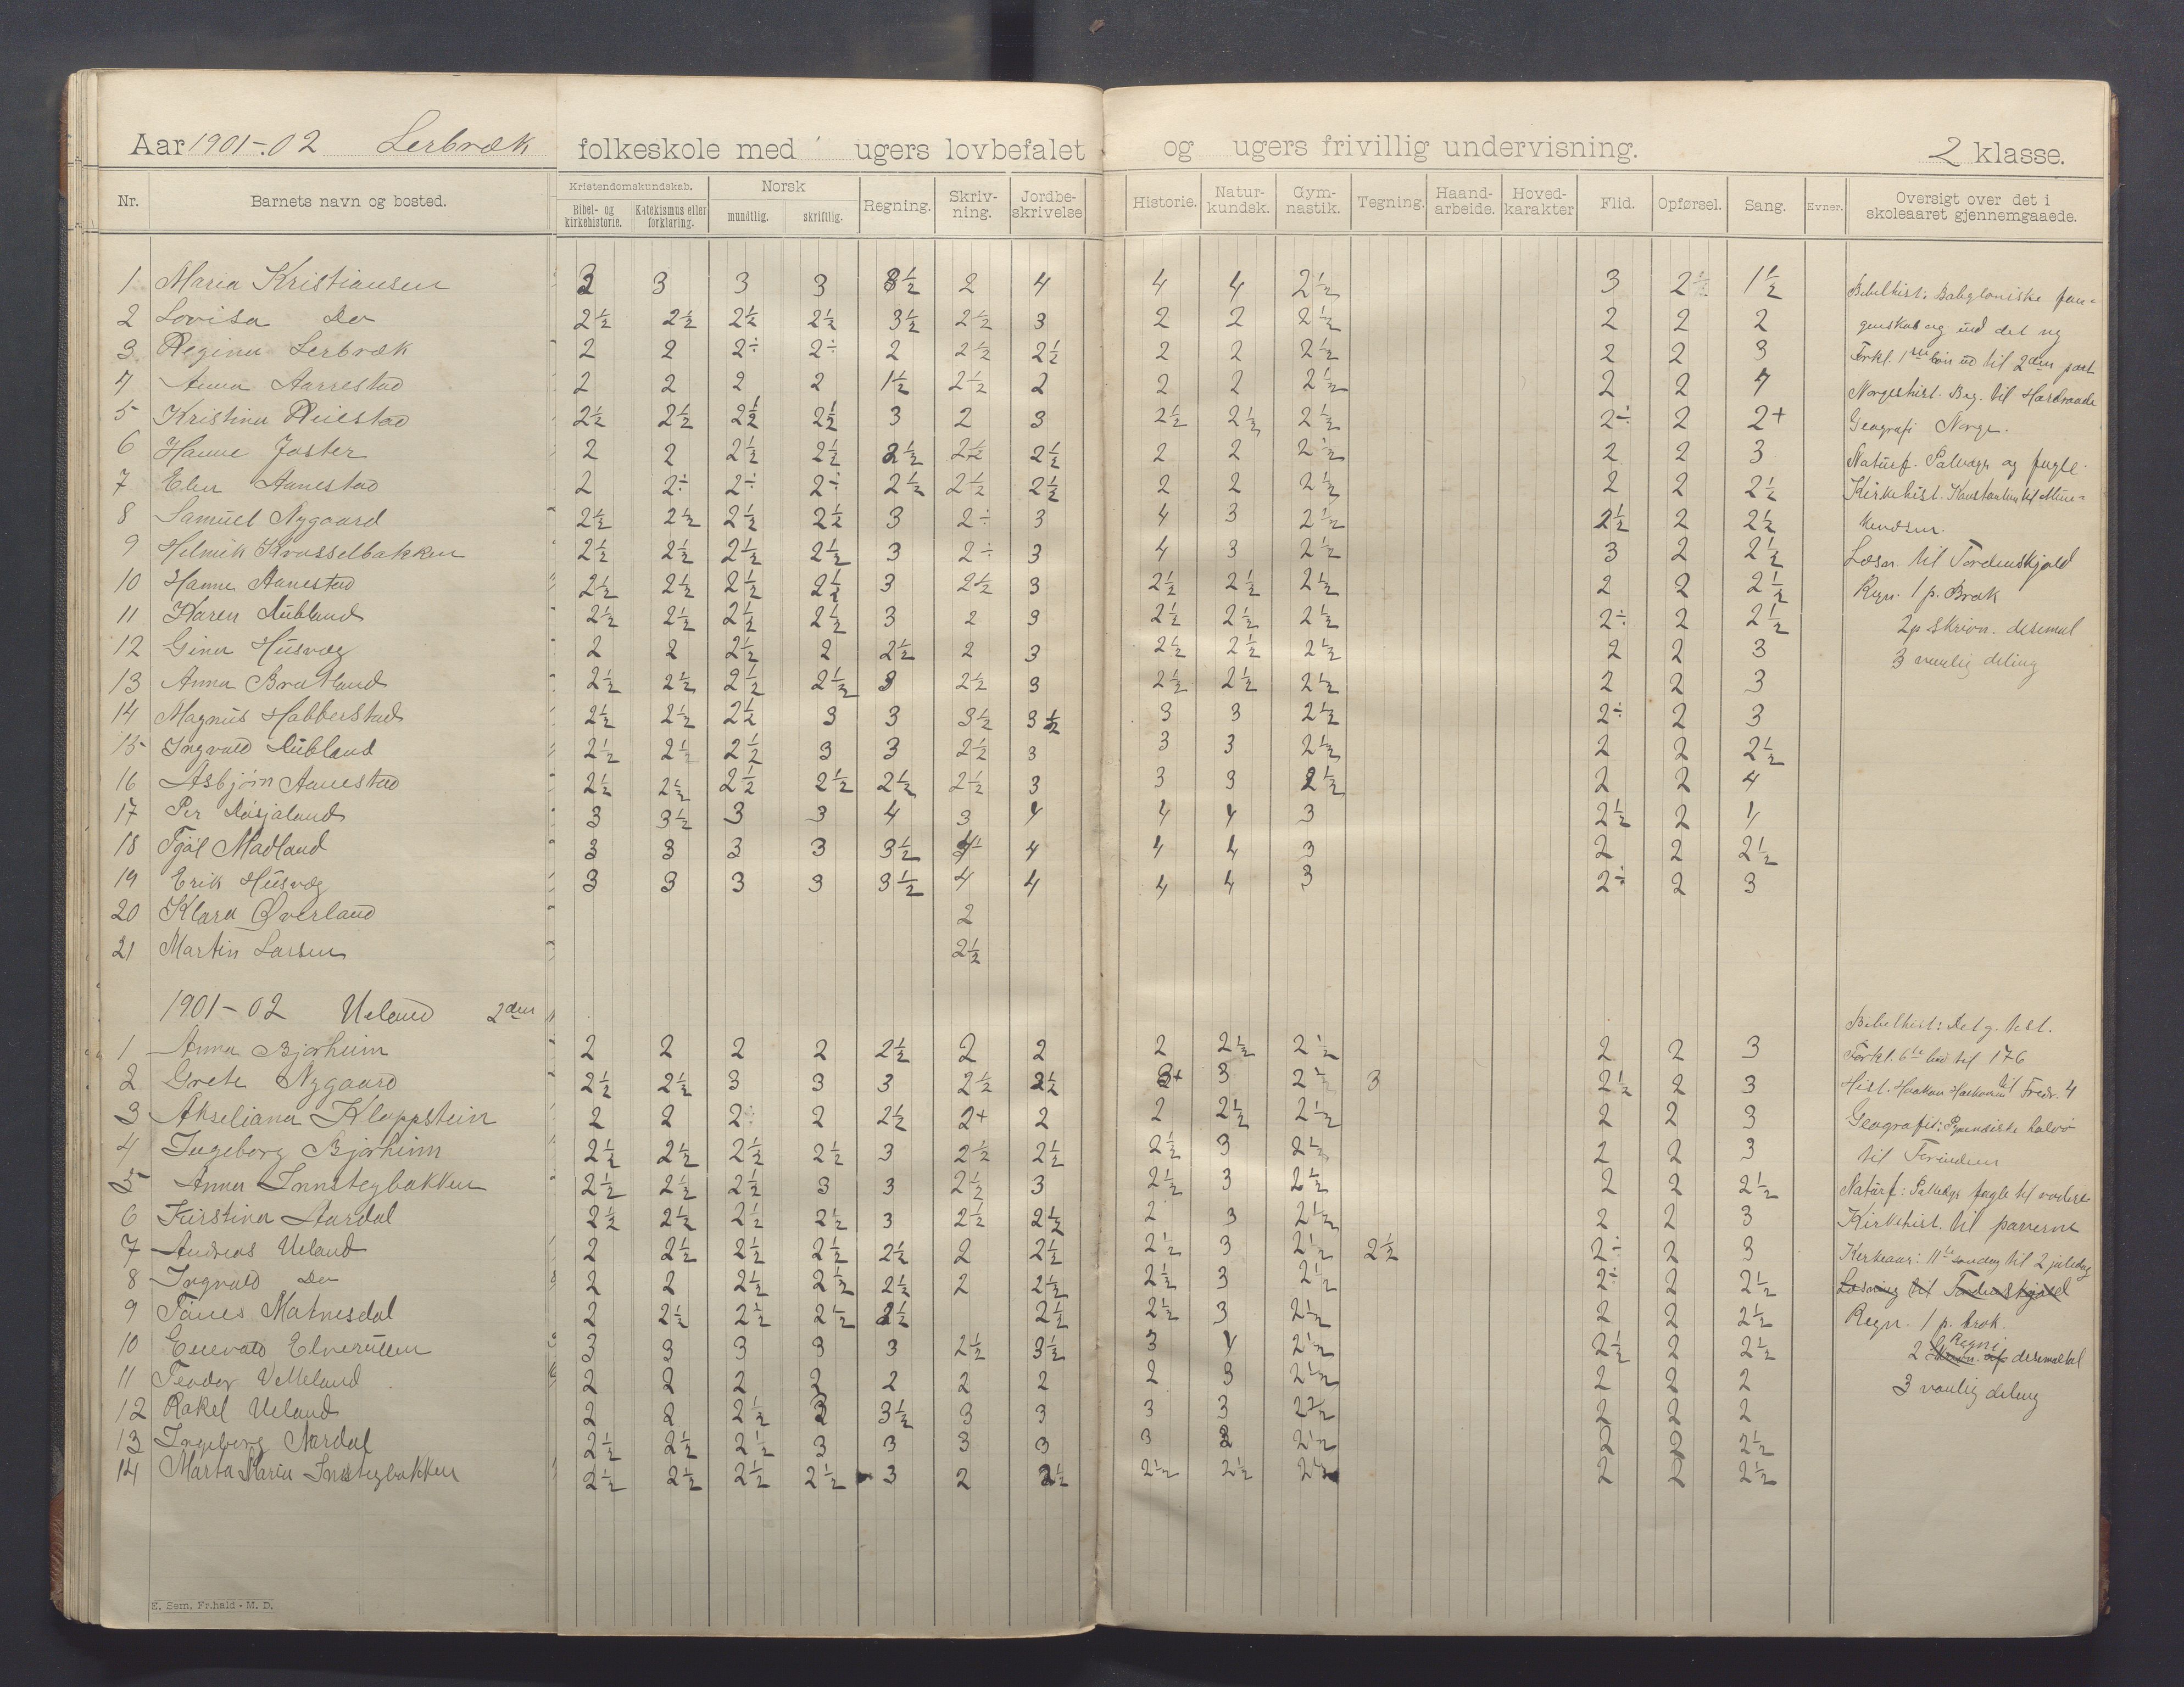 Aar 1901-02 Lerbræk folkeskole med ugers lovbefalet og ugers frivillig undervisning. 2 klasse.
Nr. Barnets navn og bosted. Kristendomskundskab. Norsk Regning. Skriv-ning. Jordbe-skrivelse Historie. Natur-kundsk. Gym-nastik. Tegning. Haand-arbeide. Hoved-karakter Flid. Opførsel. Sang. Evner. Oversigt over det i skoleaaret gjennemgaaede.
Bibel- og kirkehistorie. Katekismus eller forklaring. mundtlig. skriftlig.
1 Maria Kristiansen 3 3 3 3 3½ 2 4 4 4 2½ 3 2½ 1½ Bibelhist: Babyloniske fan-
2 Lovisa Do 2½ 2½ 2½ 2½ 3½ 2½ 3 2 2 2½ 2 2 2 genskab og ind det ny
3 Regina Lerbræk 2 2 2÷ 2÷ 2 2½ 2½ 2 2 2½ 2 2 3 Forkl. 1ste bøn ud til 2den part
4 Anna Aarrestad 2 2 2 2 1½ 2½ 2 2 2 2½ 2 2 4 Norgeshist. Beg. til Hardraade
5 Kristina 2½ 2½ 2½ 2½ 3 2 3 2½ 2½ 2½ 2÷ 2 2+ Geografi Norge.
6 Hanne Joster 2 2 2½ 2½ 2½ 2½ 2½ 2 2 2½ 2 2 3 Naturf. Patdyr og fugle.
7 Elen Aanestad 2 2÷ 2÷ 2÷ 2½ 2½ 2½ 2 2 2½ 2 2 2½ Kirkehist.
8 Samuel Nygaard 2½ 2½ 2½ 2½ 3 2÷ 3 4 3 2½ 2½ 2 2½
9 Helmik Krosselbakken 2½ 2½ 2½ 2½ 3 2÷ 3 4 3 2½ 3 2 2½ Læsn. til Tordenskjold
10 Hanna Aanestad 2½ 2½ 2½ 2½ 3 2½ 3 2½ 2½ 2½ 2 2 2½ Regn. 1 p. Brøk
11 Karen Aubland 2½ 2½ 2½ 2½ 3 2 3 2½ 2½ 2½ 2÷ 2 2½ 2p skrivn. desimal
12 Gina Husvæg 2 2 2½ 2 2½ 2 3 2½ 2½ 2½ 2 2 3 3 vanlig deling
13 Anna Bratland 2½ 2½ 2½ 2½ 3 2½ 3 2½ 2½ 2½ 2 2 3
14 Magnus Habberstad 2½ 2½ 2½ 3 3 3½ 3½ 3 3 2½ 2÷ 2 3
15 Ingvald Aubland 2½ 2½ 2½ 3 3 2½ 3 3 3 2½ 2 2 2½
16 Asbjørn Aanestad 2½ 2½ 2½ 2½ 2½ 2½ 3 3 3 2½ 2 2 4
17 Per Røsjaland 3 3½ 3 3 4 3 4 4 4 3 2½ 2 4
18 Tjøl Madland 3 3 3 3 3½ 4 4 4 3 2 2 2½
19 Erik Husvæg 3 3 3 3 3½ 4 4 4 4 3 2÷ 2 3
20 Klara Øverland 2
21 Martin Larsen 2½
1901-02 Ueland 2den Bibelhist: Det g. test.
1 Anna Bjørheim 2 2 2 2 2½ 2 2 2 2½ 2½ 2 2 3 Forkl. 6te bud til 176
2 Grete Nygaard 2½ 2½ 3 3 3 2½ 2½ 3+ 3 2½ 3 2½ 2 3 Hist. Haakon Haakonsen til Fredr. 4
3 Akseliana Kloppstein 2 2 2÷ 2 2½ 2+ 2 2 2½ 2½ 2 2 3 Geografi: Pyrenæiske halvø
4 Ingeborg Bjørheim 2½ 2½ 2½ 2½ 3 2½ 2½ 2½ 3 2½ 2 2 3 til
5 Anna Innstegbakken 2½ 2½ 2½ 3 3 2½ 3 2½ 3 2½ 2 2 2½ Naturf: Patdyr fugle til
6 Kirstina Aardal 2½ 2½ 2½ 2½ 3 2½ 2½ 2 3 2½ 2 2 3 Kirkehist. til paverne
7 Andreas Ueland 2 2½ 2½ 2½ 2½ 2 2½ 2½ 3 2½ 2½ 2÷ 2 3 Kirkeaar: 11te søndag til 2 juledag
8 Ingvald Do 2 2 2½ 2½ 2½ 2 2½ 2½ 3 2½ 2÷ 2 2½ Læsning til Tordenskjold
9 Tønes Matnesdal 2 2½ 2½ 2½ 2½ 2½ 2½ 3 2½ 2 2 2½ Regn. 1 p. brøk.
10 Eenvald Elverutten 3 3 3 3 3 2½ 3½ 3 4 2½ 2½ 2 2½ 2 Regni desimaltal
11 Teodor Velleland 2 2 2 2 2 2 2 2 3 2½ 2 2 2 3 vanlig deling
12 Rakel Ueland 2 2 2½ 3 3½ 3 3 3 3 2½ 2 2 2
13 Ingeborg Aardal 2½ 2½ 2½ 3 3 3 3 3 3 2½ 2 2 2½
14 Marta Maria Innstegbakken 2½ 2½ 2½ 2½ 3 2 2½ 2½ 2½ 2½ 2 2 2½
E. Sem, Fr.hald - M. D.